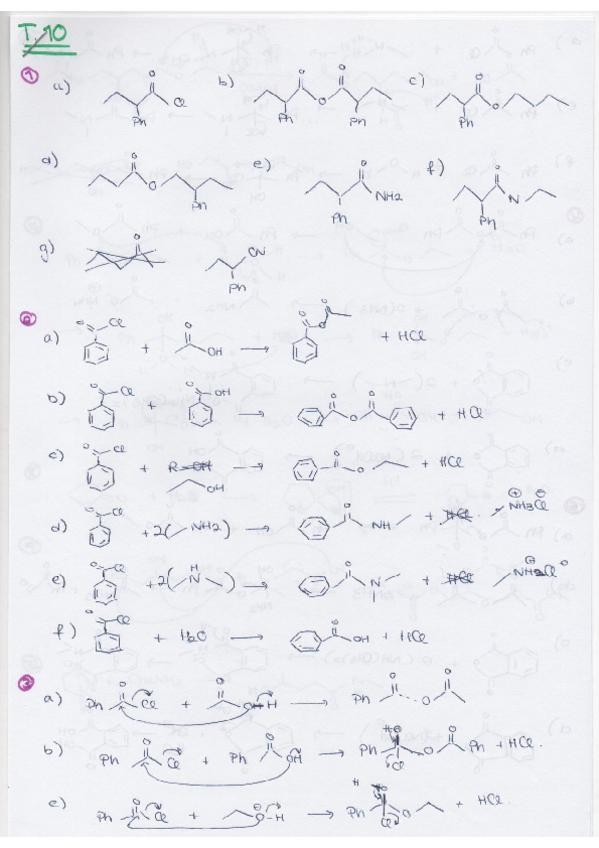 T.10
1
a) O Cl Ph
b) O O O Ph Ph
c) O O Ph
d) O O Ph
e) O NH2 Ph
f) O N Ph
g) CN Ph
2
a) O Cl + O OH → O O O + HCl
b) O Cl + O OH → O O O + HCl
c) O Cl + R-OH OH → O O + HCl
d) O Cl + 2( NH2) → O NH + HCl NH3Cl
e) O Cl + 2( H N ) → O N + HCl NH2Cl
f) O Cl + H2O → O OH + HCl
3
a) Ph O Cl + O O H → Ph O O O
b) Ph O Cl + Ph O OH → Ph O Cl O O Ph + HCl.
c) Ph O Cl + O-H → H Ph O Cl O + HCl.